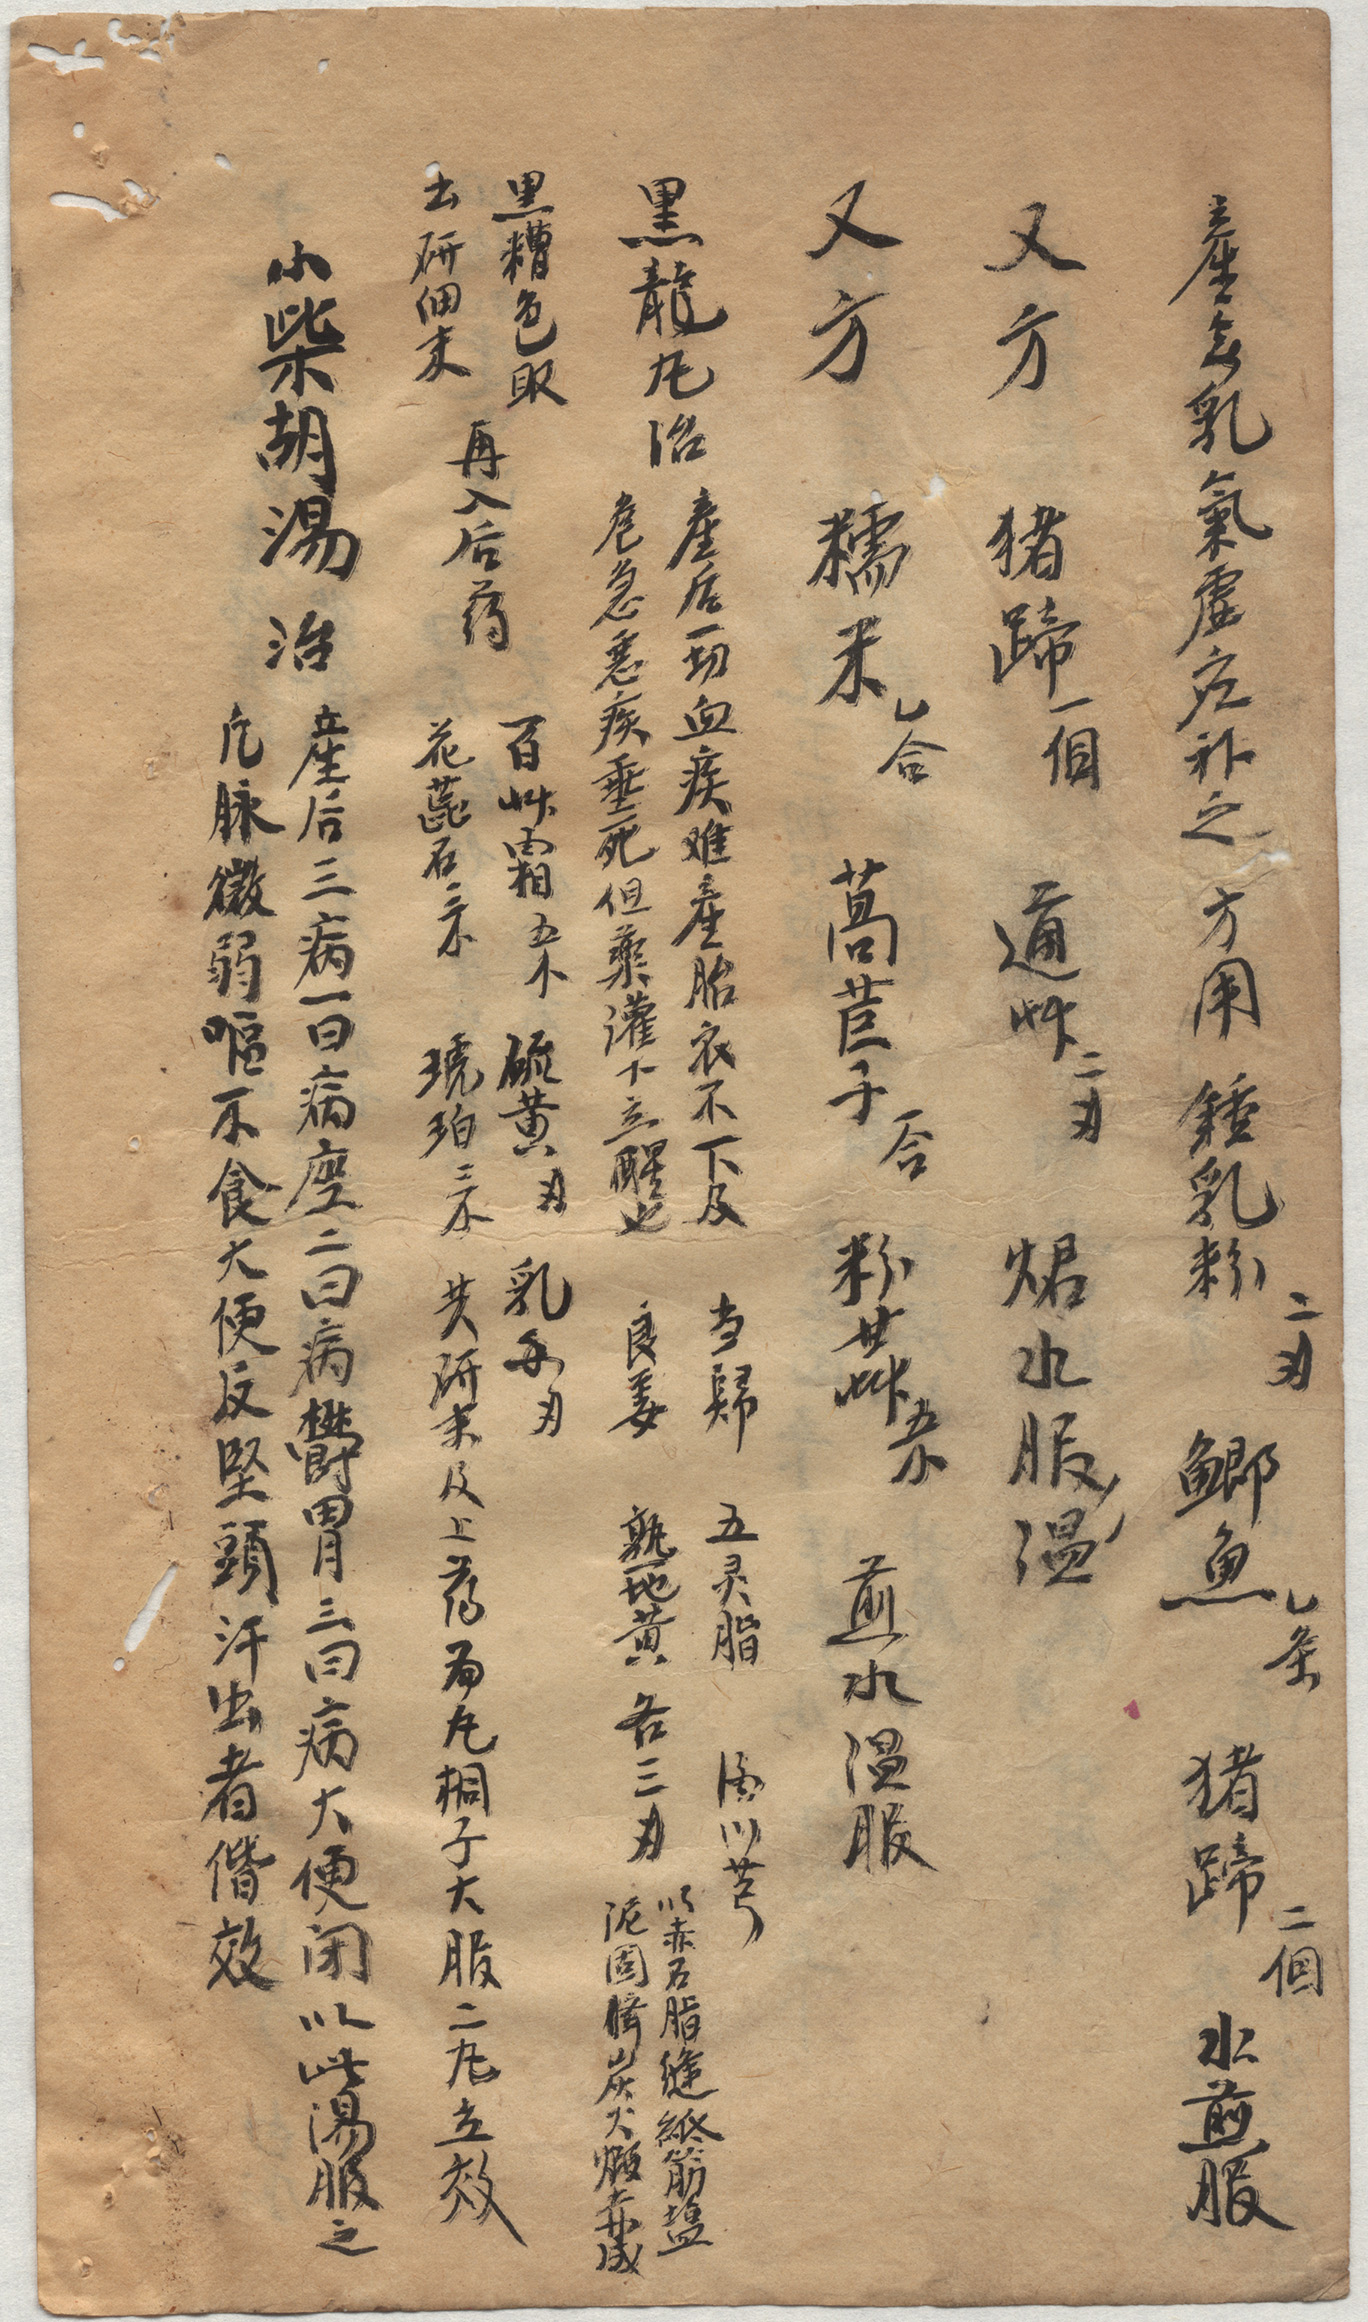 產無乳氣虛宜补之 方用 鍾乳粉二刄 鯽魚乚条 猪蹄二個 水煎服
又方 猪蹄一個 通艸二刄 焜水服溫
又方 糯米乚合 萵苣子一合 粉艸五分 煎水溫服
黑龍丸治
產后一切血疾难產胎衣不下及
危急惡疾垂死但藥灌下立醒也
当歸 五灵脂 川芎
良姜 熟地黄 各三刄
以赤石脂縫紙筋塩
泥固脐炭火煅赤成
黑糟色取
出研細末
再入后药
百艸霜五个 硫黄刄 乳香刄
花蕊石三 琥珀三
共研末及上药为丸桐子大服二九立效
小柴胡湯 治
產后三病一曰病痙二曰病欝胃三曰病大便闭以此湯服之
凢脉微弱嘔不食大便反堅頭汗出者偕效